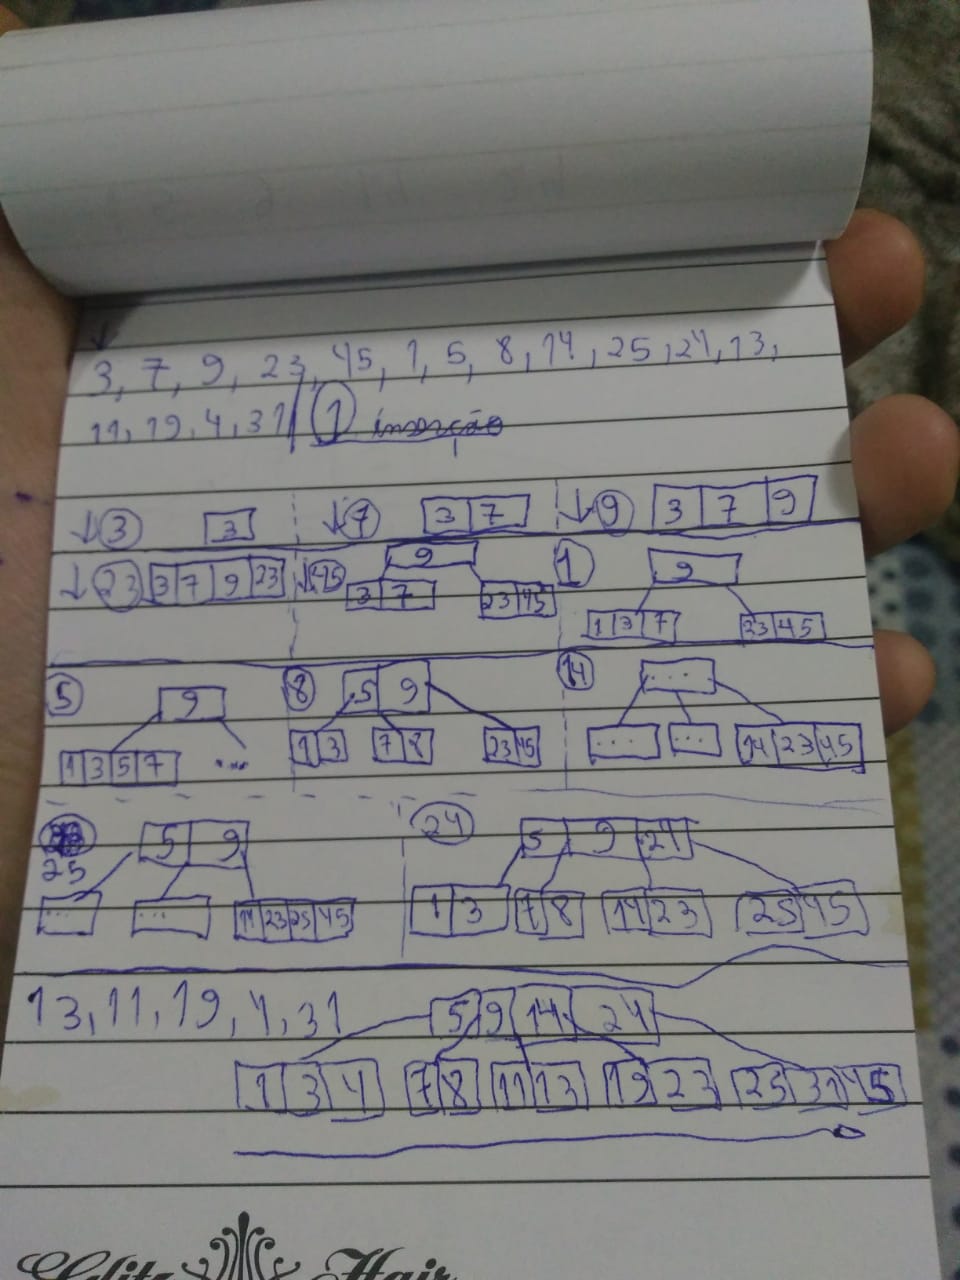 3, 7, 9, 23, 45, 1, 5, 8, 14, 25, 24, 13,
11, 19, 4, 31 1 inserção
3 3 7 3 7 9 3 7 9
23 3 7 9 23 45 9 1 9
3 7 23 45 1 3 7 23 45
5 9 8 5 9 14 ....
1 3 5 7 ... 1 3 7 8 23 45 ... ... 14 23 45
25 5 9 24 5 9 24
... ... 14 23 25 45 1 3 7 8 14 23 25 45
13, 11, 19, 4, 31 5 9 14 24
1 3 4 7 8 11 13 19 23 25 31 45
Hair